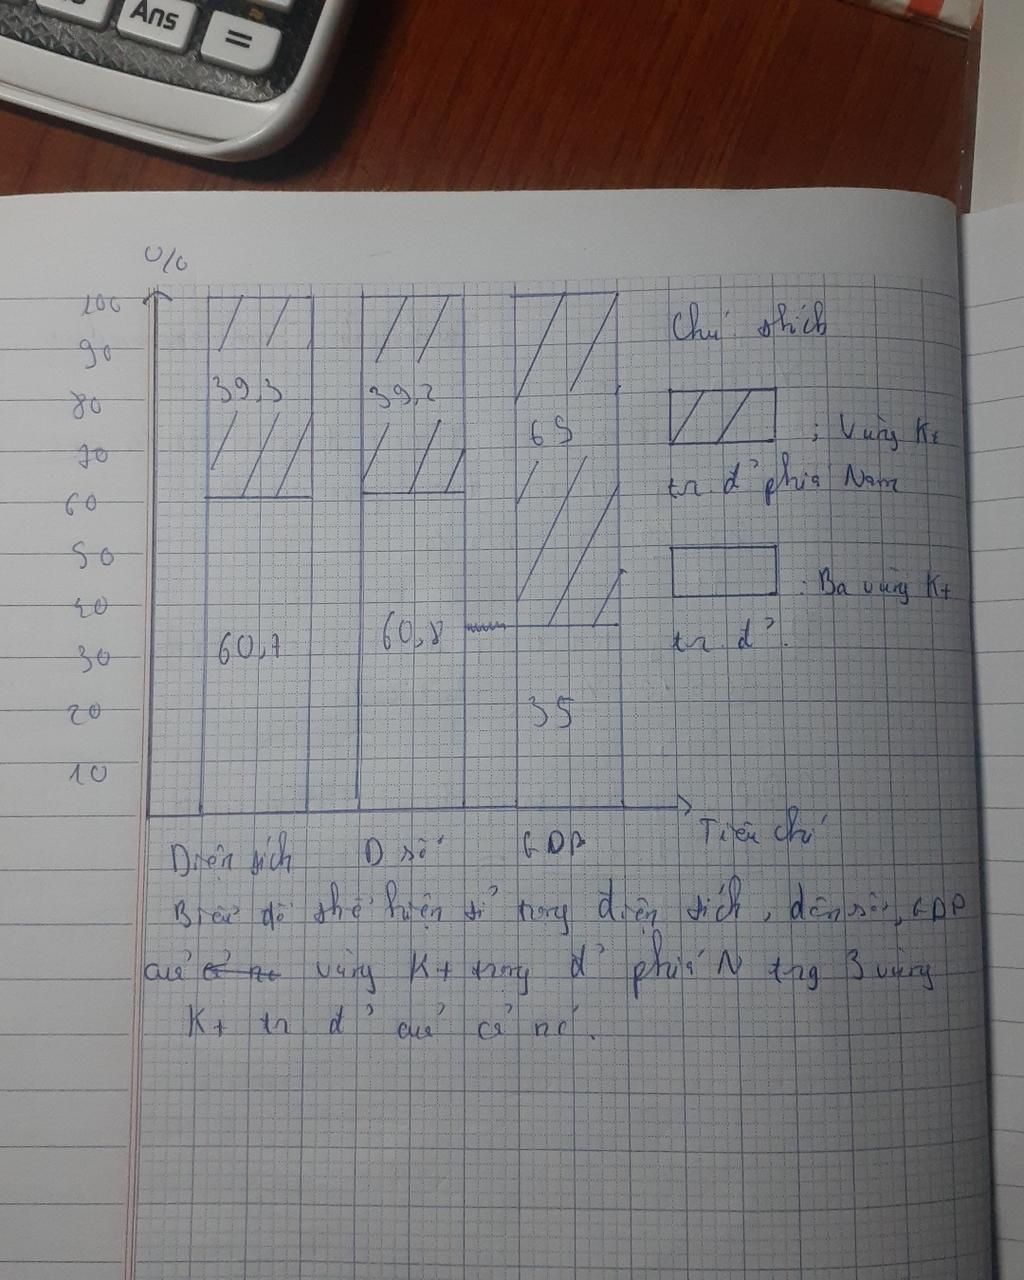 Ans
=
%
100
90
80
70
60
50
40
30
20
10
39,3
39,2
65
60,7
60,8
35
Chú thích
: Vùng Kt
tr đ' phía Nam
: Ba vùng Kt
tr đ'.
Tiêu chí
Diện tích D số GDP
Biểu đồ thể hiện tỉ trọng diện tích, dân số, GDP
của vùng Kt trọng đ' phía N trg 3 vùng
Kt tr đ' của cả nc.